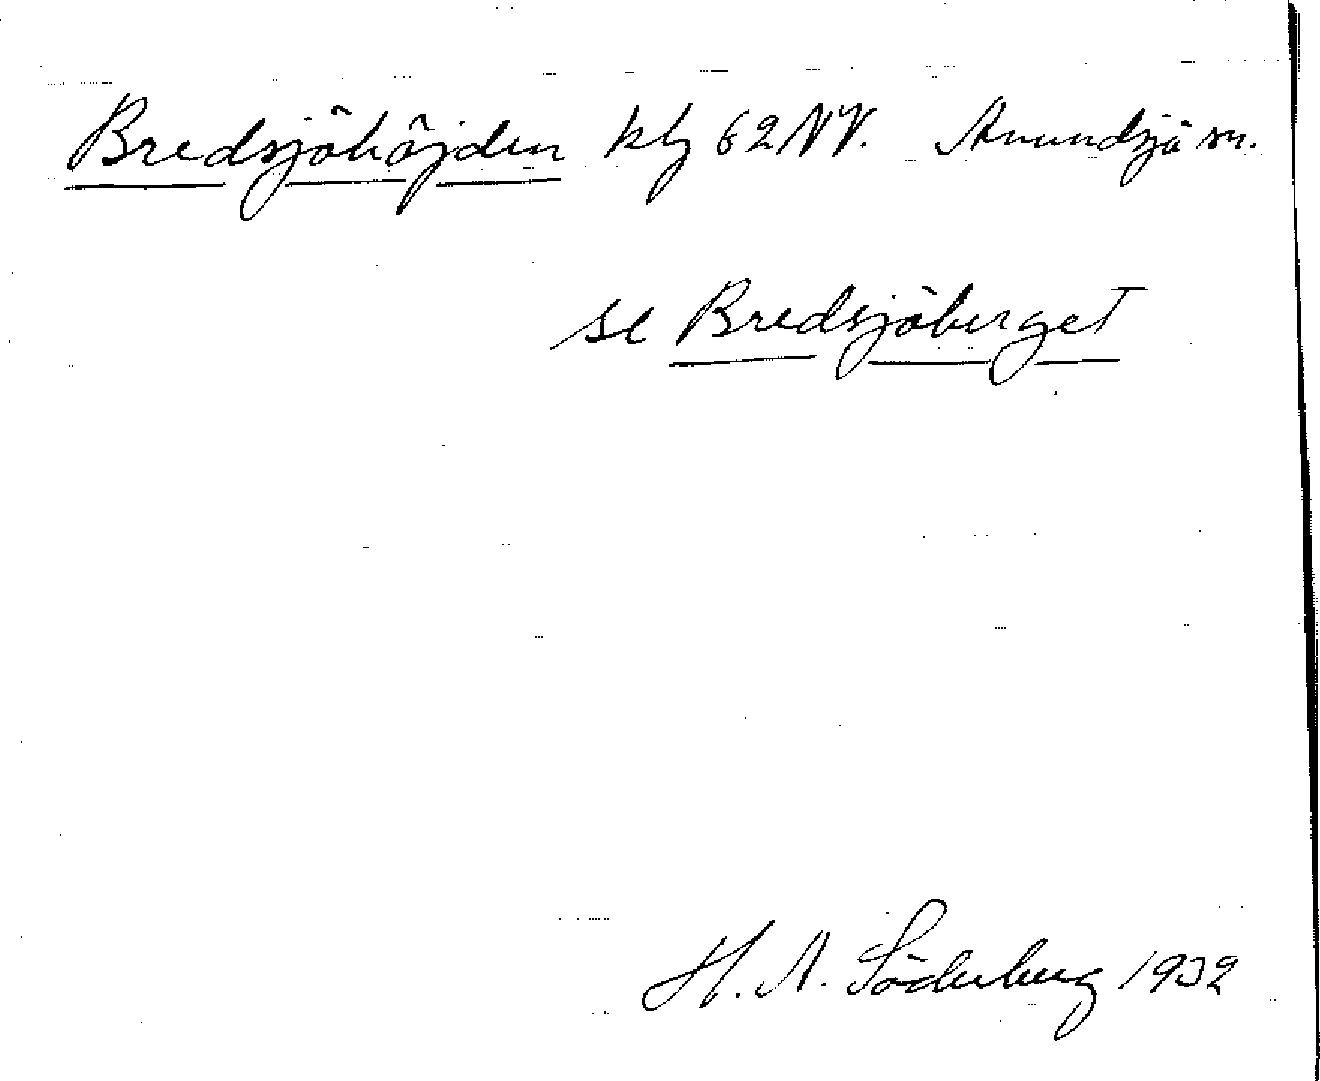 Bredsjöhöjden kbg 62 NV. Anundsjö sn.
se Bredsjöberget
H. A. Söderberg 1932